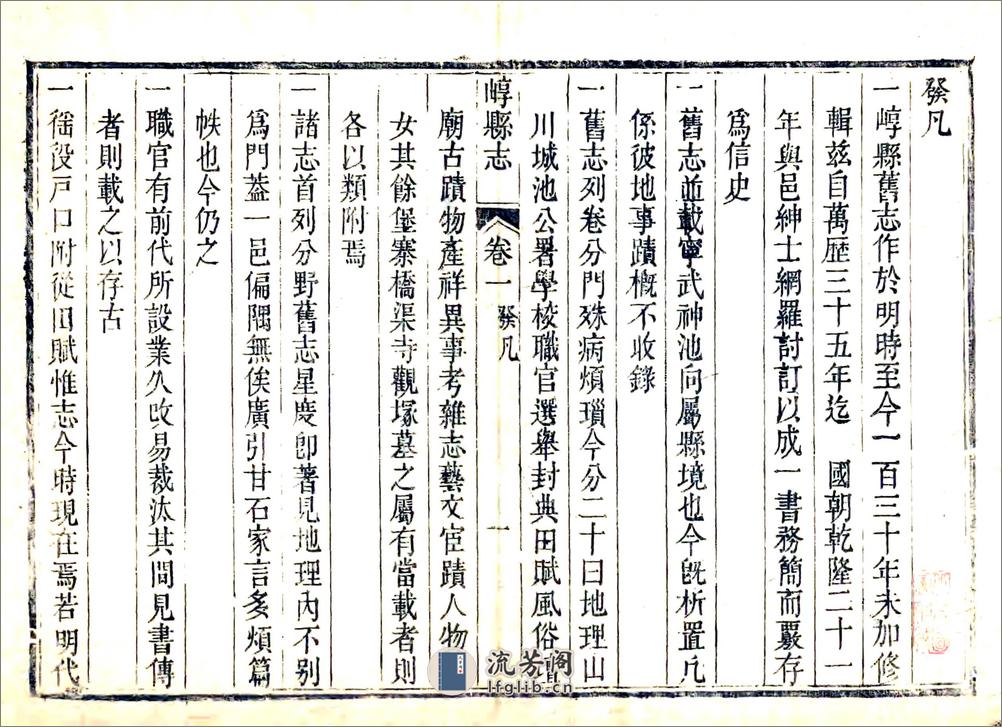 發凡
一崞縣舊志作於明時至今一百三十年未加修
輯茲自萬歷三十五年迄　國朝乾隆二十一
年與邑紳士網羅討訂以成一書務簡而覈存
為信史
一舊志並載寧武神池向屬縣境也今旣析置凡
係彼地事蹟槪不收錄
一舊志列卷分門殊病煩瑣今分二十曰地理山
川城池公署學校職官選舉封典田賦風俗
崞縣志
卷一　發凡
一
廟古蹟物產祥異事考雜志藝文宦蹟人物
女其餘堡寨橋渠寺觀塚墓之屬有當載者則
各以類附焉
一諸志首列分野舊志星度卽著見地理內不別
爲門蓋一邑偏隅無俟廣引甘石家言多煩篇
帙也今仍之
一職官有前代所設業久改易裁汰其間見書傳
者則載之以存古
一徭役戸口附從田賦惟志今時現在焉若明代
流芳阁
lfglib.cn